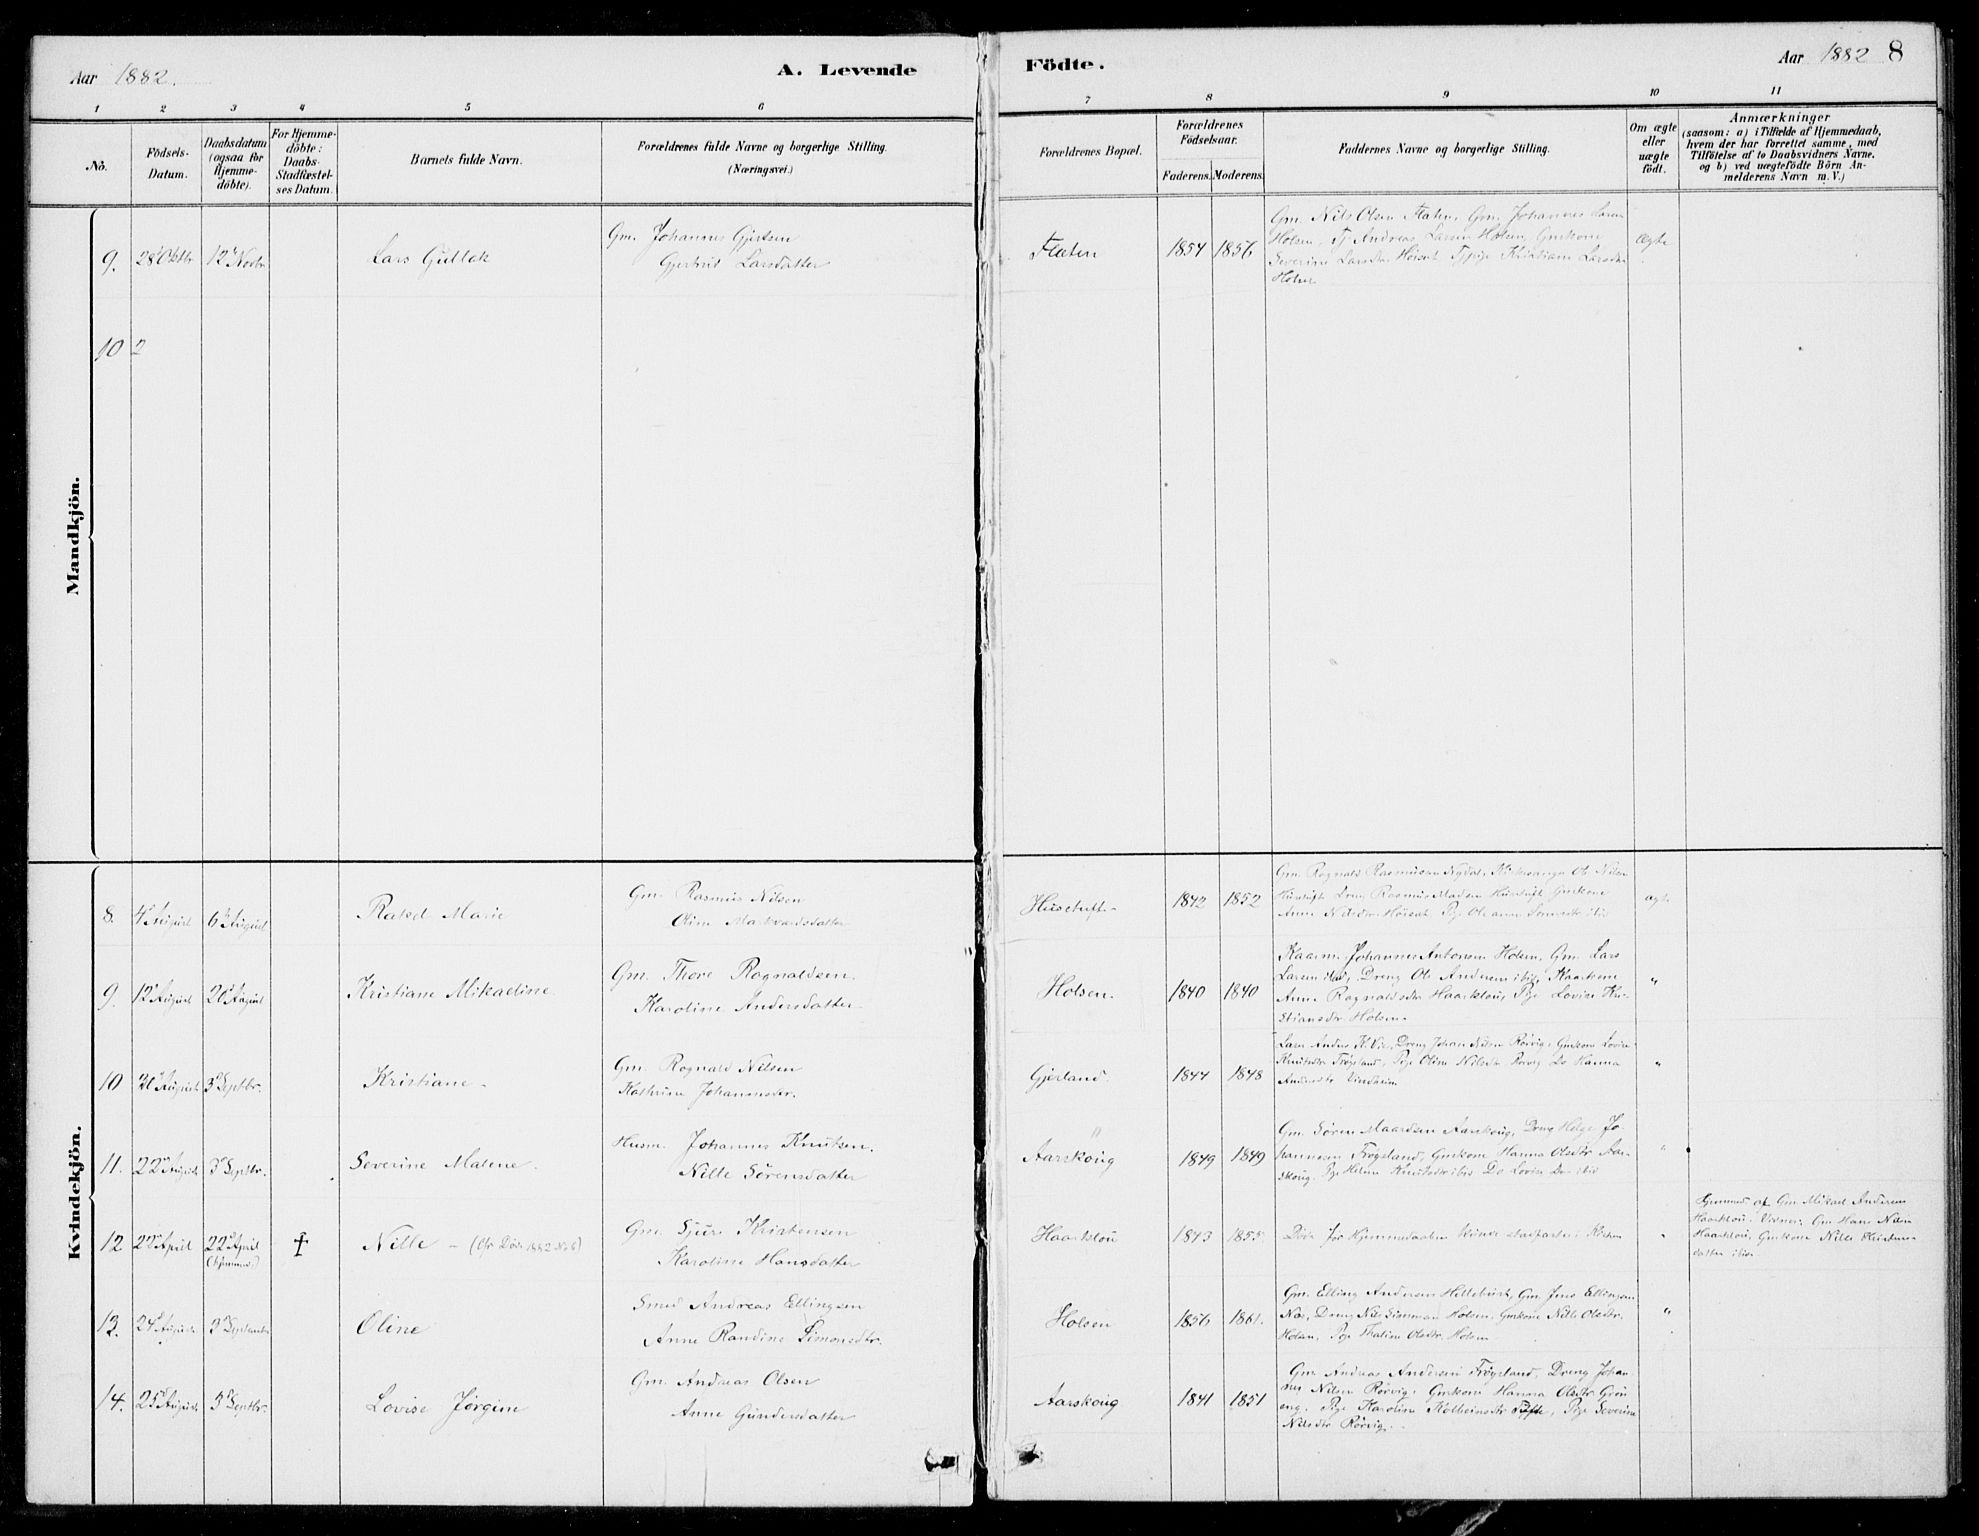 Aar 1882.
A. Levende
1 2 3 4 5 6
No.
Födsels-Datum.
Daabsdatum (ogsaa for Hjemme-döbte).
For Hjemme-döbte: Daabs-Stadfæstel-ses Datum.
Barnets fulde Navn.
Forældrenes fulde Navne og borgerlige Stilling.
(Næringsvei.)
Mandkjön.
9. 28 Oktbr 12 Novbr. Lars Gullak
Gm. Johannes Gjertsen
Gjertrud Larsdatter
10 2
Kvindekjön.
8. 4 August 6 August Rakel Marie
Gm. Rasmus Nilsen
Oline Markvardsdatter
9. 12 August 20 August Kristiane Mikaeline
Gm. Thore Ragnaldsen.
Karoline Andersdatter
10 20 August 3 Septbr. Kristiane
Gm. Ragnald Nilsen
Kathrine Johannesdtr.
11. 22 August 3 Septbr. Severine Malene.
Husm. Johannes Knutsen.
Nille Sörensdatter
12 22 April 22 April (hjemmed.) † Nille - (cfr Döde 1882 No 6)
Gm. Sjur Kristensen
Karoline Hansdatter
13. 24 August 3 Septembr Oline
Smed Andreas Ellingsen
Anne Randine Simonsdtr.
14. 25 August 3 Septbr. Lovise Jörgine
Gm. Andreas Olsen
Anne Gundersdatter
Födte.
Aar 1882 8
7 8 9 10 11
Forældrenes Bopæl.
Forældrenes Födselsaar.
Faderens. Moderens.
Faddernes Navne og borgerlige Stilling.
Om ægte eller uægte födt.
Anmærkninger
(saasom: a) i Tilfælde af Hjemmedaab,
hvem der har forrettet samme, med
Tilföielse af to Daabsvidners Navne.
og b) ved uægtefödte Börn An-
melderens Navn m. V.)
Flaten 1854 1856
Gm. Nils Olsen Flaten, Gm. Johannes Larsen
Holsen, Andreas Larsen Holsen, Gmkone
Severine Larsdtr Kristiane Larsdtr
Holsen
Ægte
Hustuft 1842 1852
Gm. Ragnald Rasmussen Ole Nilsen
Hustuft Dreng Rasmus Madsen Hustuft Gmkone
Anne Nilsdtr Pige
ægte
Holsen. 1840 1840
Kaarm. Johannes Antonsen Holsen, Gm. Lars
Larsen ibid, Dreng Ole Andersen ibid,
Anne Ragnaldsdtr Haarklou, Pige Lovise Kri-
stiansdtr. Holsen.
"
Gjerland. 1844 1848
Lars Anders Dreng Johan Nilsen Rörvig, Gmkone Lovise
Knutsdtr Tröysland, Pige Oline Nilsdtr Rörvig Do Hanna
Andersdtr Vindheim
"
Aarskoug 1849 1849
Gm. Sören Aarskoug, Dreng Helge Jo-
hannesen Tröysland, Gmkone Hanna Olsdtr Aar-
skoug. Pige Knutsdtr ibid Do Lovise Do ibid
"
Haarklou 1843 1855
Döde för Hjemmedaaben kunde stadfæstes i Kirken
"
af Gm. Mikael Andersen
Haarklou. Vidner: Gm Hans Nilsen
Haarklou, Gmkone Nille Kristens-
datter ibid.
Holsen 1856 1861.
Gm. Elling Andersen Gm. Jens Ellingsen
Næs, Dreng Nils Simonsen Holsen, Gmkone Nille Olsdtr.
Holsen, Pige Thaline Olsdtr. Holsen
"
Aarskoug 1841 1851
Gm. Andreas Andersen Tröysland, Dreng Johan-
nes Nilsen Rörvig, Gmkone Hanna Olsdtr Grön-
eng. Pige Karoline Pige Severine
Nilsdtr Rörvig.